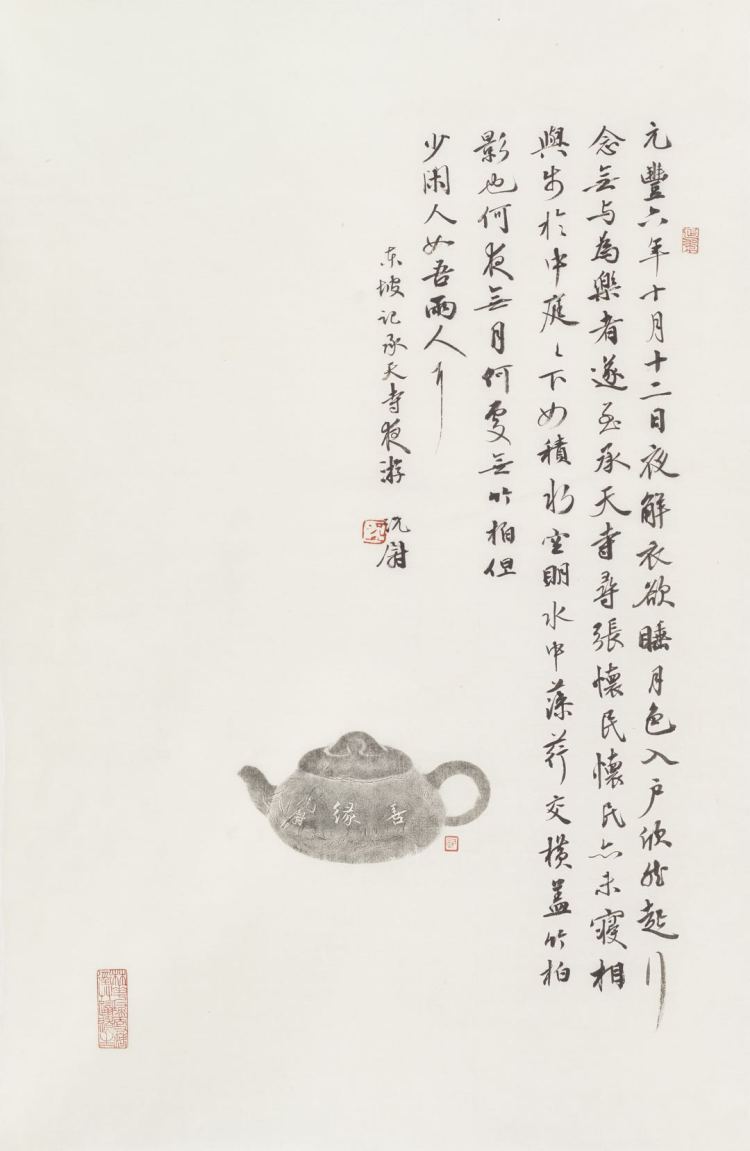 元豐六年十月十二日夜解衣欲睡月色入户欣然起行
念無与為樂者遂至承天寺尋張懷民懷民亦未寢相
與步於中庭々下如積水空明水中藻荇交橫蓋竹柏
影也何夜無月何處無竹柏但
少闲人如吾兩人耳
东坡记承天寺夜游
善缘